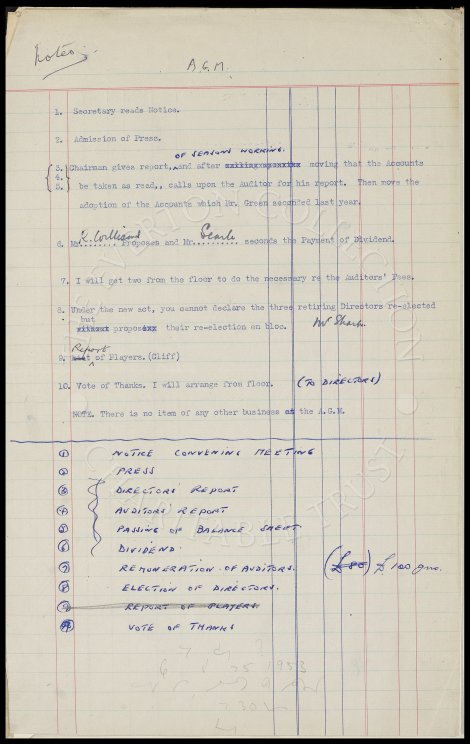 Notes
A.G.M.
1. Secretary reads Notice.
2. Admission of Press.
OF SEASONS WORKING.
3. Chairman gives report, and after moving that the Accounts
4.
5. be taken as read,, calls upon the Auditor for his report. Then move
the adoption of the Accounts which Mr. Green seconded last year.
6. Mr R. Williams proposes and Mr. Searle seconds the Payment of Dividend.
7. I will get two from the floor to do the necessary re the Auditors' Fees.
8. Under the new act, you cannot declare the three retiring Directors re-elected
but
propose their re-election en bloc. Mr Sharp.
Report
9. List of Players. (Cliff)
10. Vote of Thanks. I will arrange from floor. (TO DIRECTORS)
NOTE. There is no item of any other business at the A.G.M.
EVERTON COLLECTION
CHARITABLE TRUST
1 NOTICE CONVENING MEETING
2 PRESS
3 DIRECTORS' REPORT
4 AUDITORS' REPORT
5 PASSING OF BALANCE SHEET
6 DIVIDEND.
7 REMUNERATION OF AUDITORS. (£80) £100 gns.
8 ELECTION OF DIRECTORS.
9 REPORT OF PLAYERS.
9 VOTE OF THANKS
1953